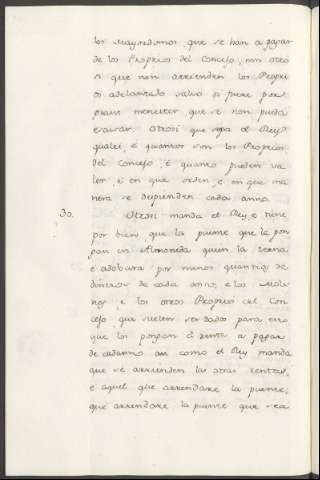 los Mayordomos que se han a pagar
de los Proprios del Concejo, nin otro
si que non arrienden los Propri
os adelantado salvo si fuere por
gran menester que se non pueda
escusar. Otrosi que sepa el Rey
quales, é quantos son los Proprios
del Concejo, é quanto pueden va
ler, é en que orden, e en que ma
nera se despienden cada anno.
30. Otrosi manda el Rey, e tiene
por bien que la puente que la pon
gan en Almoneda quien la terna
e adobara por menos quantia de
dineros de cada anno, e los Moli
nos, e los otros Proprios del Con
cejo que suelen ser dados para esto
que los pongan á renta a pagar
de cadanno asi como el Rey manda
que se arrienden las otras rentas,
e aquel que arrendare la puente,
que arrendare la puente que sea